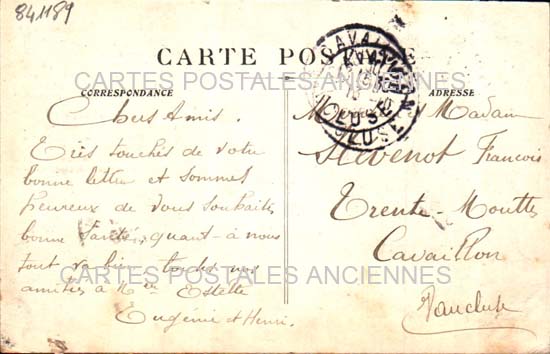 841189
CARTE POSTALE
CARTES POSTALES ANCIENNES
CORRESPONDANCE
ADRESSE
CAVAILLON
VAUCLUSE
Chers Amis.
Très touchés de votre
bonne lettre et sommes
heureux de vous souhaiter
bonne Santée, quant à nous
tout va bien
amitiés à Estelle
Eugénie et Henri.
M Madame
Stévenot François
Trente-Mouttes
Cavaillon
Vaucluse
CARTES POSTALES ANCIENNES